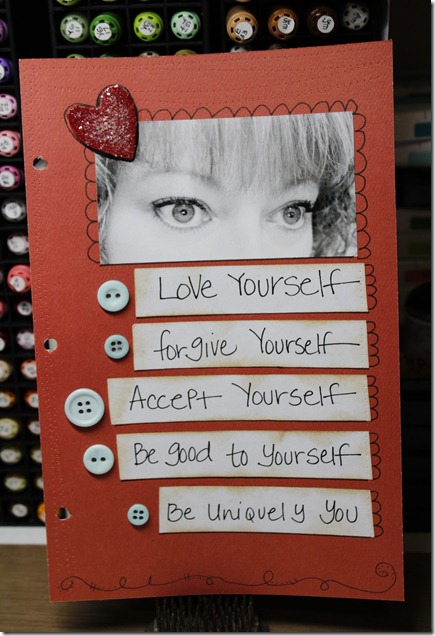 Love Yourself
forgive Yourself
Accept Yourself
Be good to yourself
Be Uniquely You